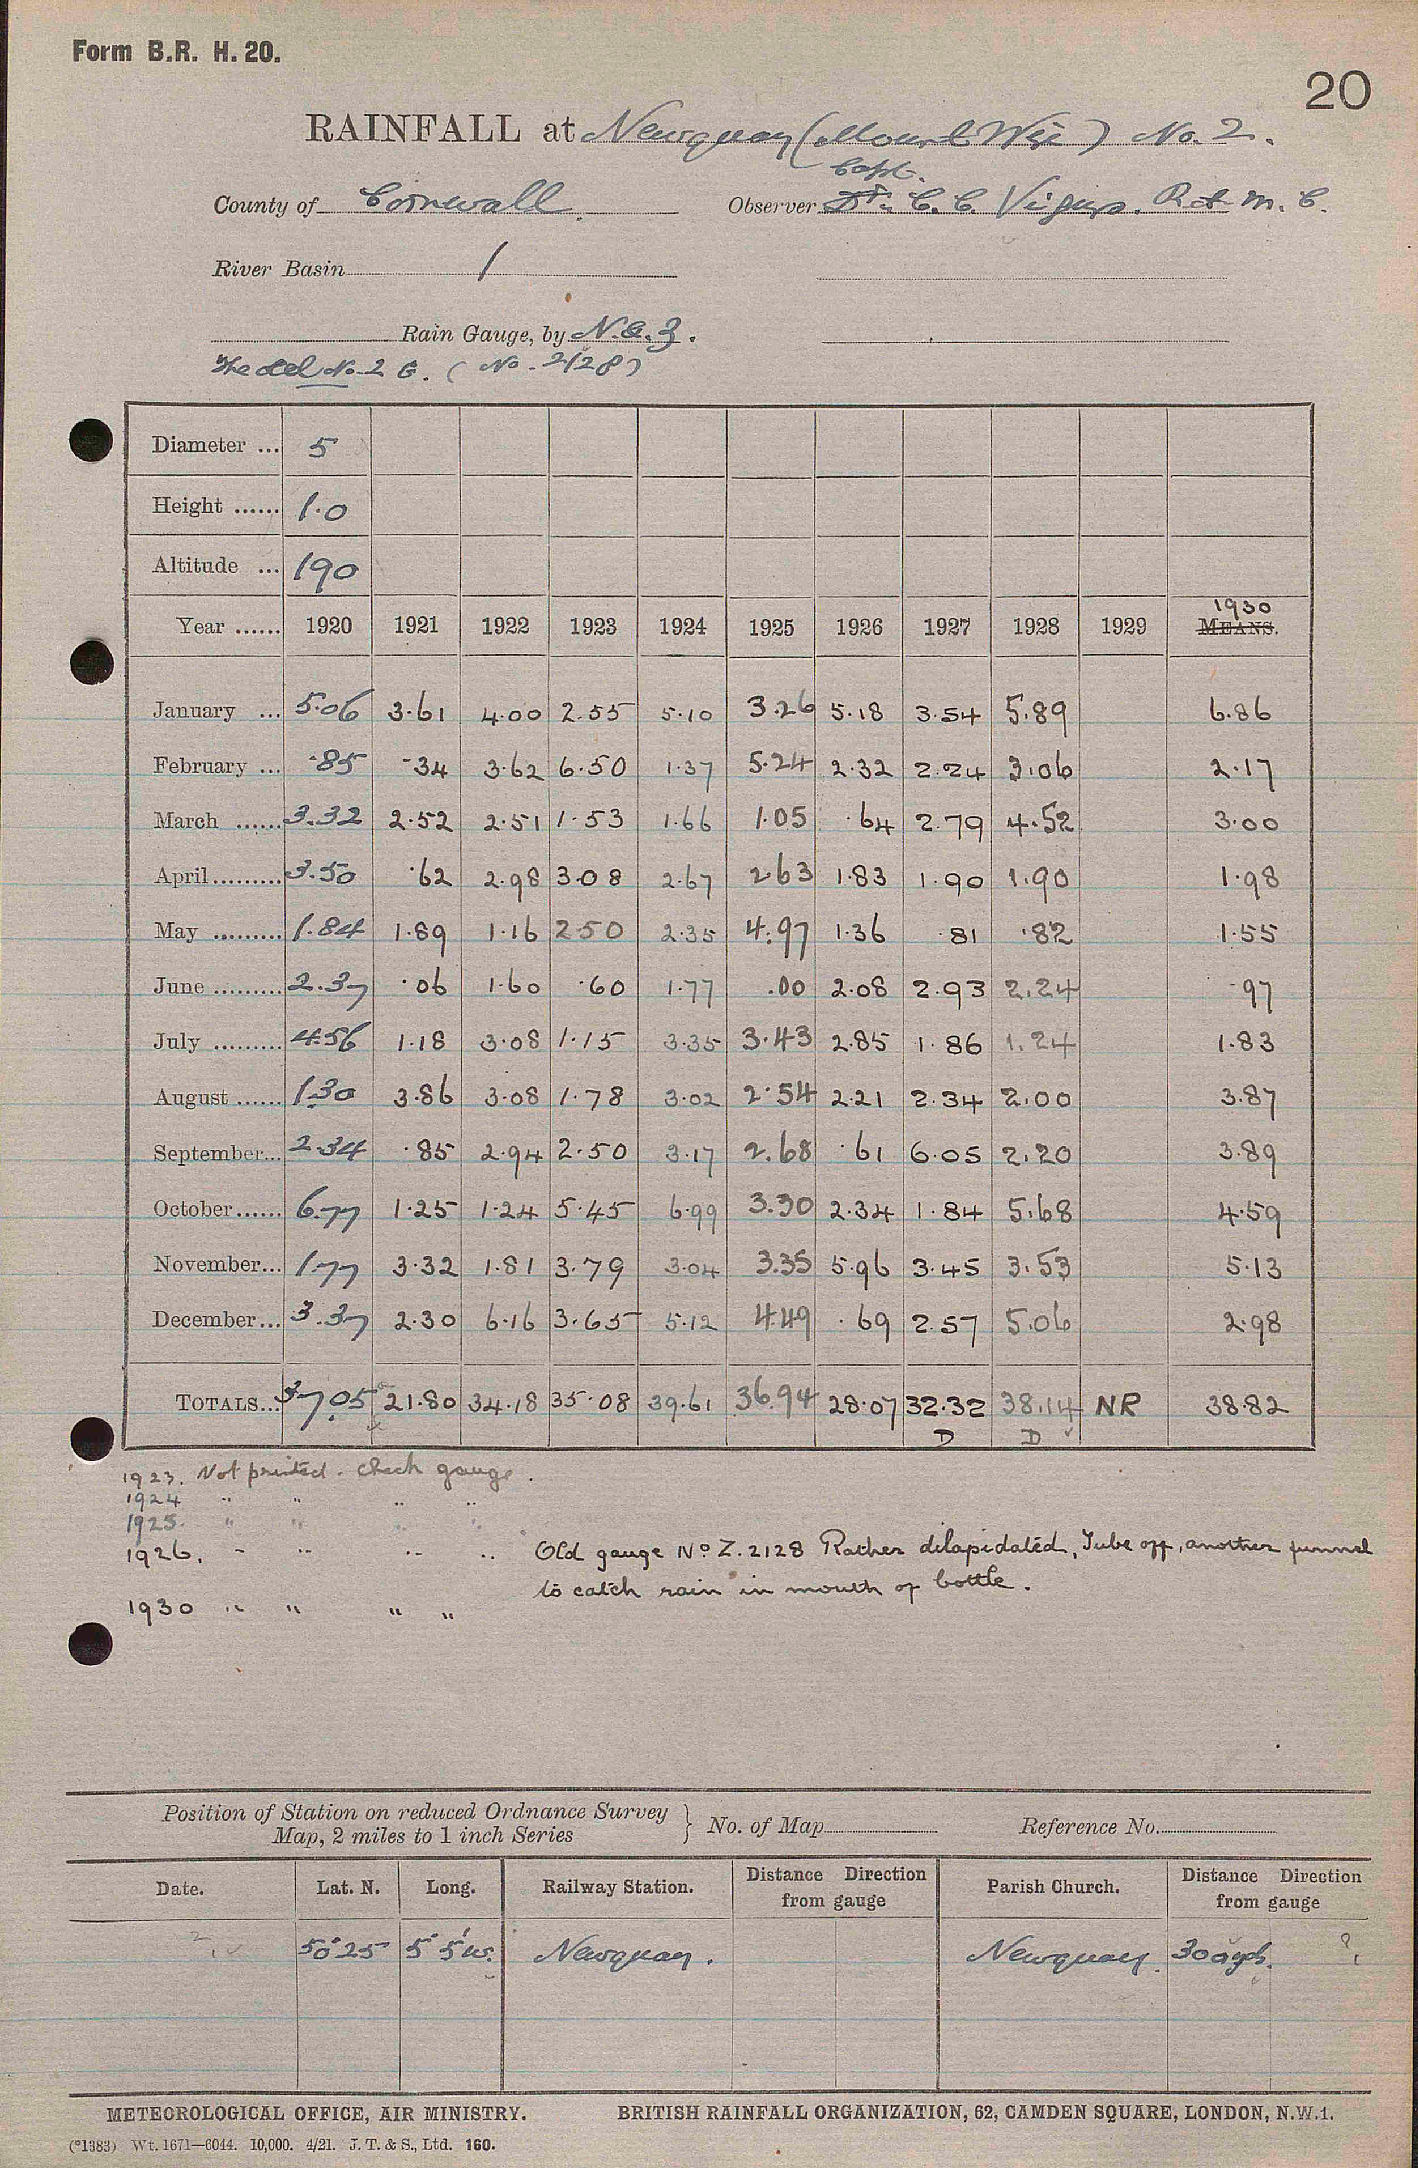 Form B.R. H. 20.
20
RAINFALL at Newquay (Mount Wise) No. 2.
Capt.
County of Cornwall. Observer Dr. C. C. Vigurs. R.A.M.C.
River Basin 1
Rain Gauge, by N. & Z.
No. 2 G. (No. 2128)
Diameter ... 5
Height ...... 1.0
Altitude ... 190
1930
Year ...... 1920 1921 1922 1923 1924 1925 1926 1927 1928 1929 MEANS.
January ... 5.06 3.61 4.00 2.55 5.10 3.26 5.18 3.54 5.89 6.86
February ... .85 .34 3.62 6.50 1.37 5.24 2.32 2.24 3.06 2.17
March ...... 3.32 2.52 2.51 1.53 1.66 1.05 .64 2.79 4.52 3.00
April ......... 3.50 .62 2.98 3.08 2.67 2.63 1.83 1.90 1.90 1.98
May ......... 1.84 1.89 1.16 2.50 2.35 4.97 1.36 .81 .82 1.55
June ......... 2.37 .06 1.60 .60 1.77 .00 2.08 2.93 2.24 .97
July ......... 4.56 1.18 3.08 1.15 3.35 3.43 2.85 1.86 1.24 1.83
August ...... 1.30 3.86 3.08 1.78 3.02 2.54 2.21 2.34 2.00 3.87
September... 2.34 .85 2.94 2.50 3.17 2.68 .61 6.05 2.20 3.89
October ...... 6.77 1.25 1.24 5.45 6.99 3.30 2.34 1.84 5.68 4.59
November... 1.77 3.32 1.81 3.79 3.04 3.35 5.96 3.45 3.53 5.13
December ... 3.37 2.30 6.16 3.65 5.12 4.49 .69 2.57 5.06 2.98
TOTALS... 37.05 21.80 34.18 35.08 39.61 36.94 28.07 32.32 38.14 NR 38.82
D D
1923. Not printed. Check gauge.
1924 " " " "
1925. " " " "
1926. " " " " Old gauge No Z. 2128 Rather dilapidated, Tube off, another funnel
to catch rain in mouth of bottle.
1930 " " " "
Position of Station on reduced Ordnance Survey
Map, 2 miles to 1 inch Series } No. of Map Reference No.
Date. Lat. N. Long. Railway Station. Distance Direction from gauge Parish Church. Distance Direction from gauge
50° 25 5° 5' W. Newquay. Newquay. 300 yds. ?
METEOROLOGICAL OFFICE, AIR MINISTRY. BRITISH RAINFALL ORGANIZATION, 62, CAMDEN SQUARE, LONDON, N.W.1.
(°1383) Wt. 1671—6044. 10,000. 4/21. J. T. & S., Ltd. 160.